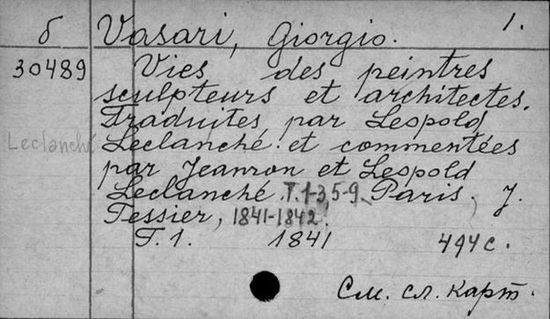 б Vasari, Giorgio. 1.
30489 Vies des peintres
sculpteurs et architectes.
Traduites par Leopold
Leclanché Leclanché et commentées
par Jeanron et Leopold
Leclanché. T. 1-3, 5-9. Paris. J.
Tessier, 1841-1842.
T. 1. 1841 494 с.
См. сл. карт.